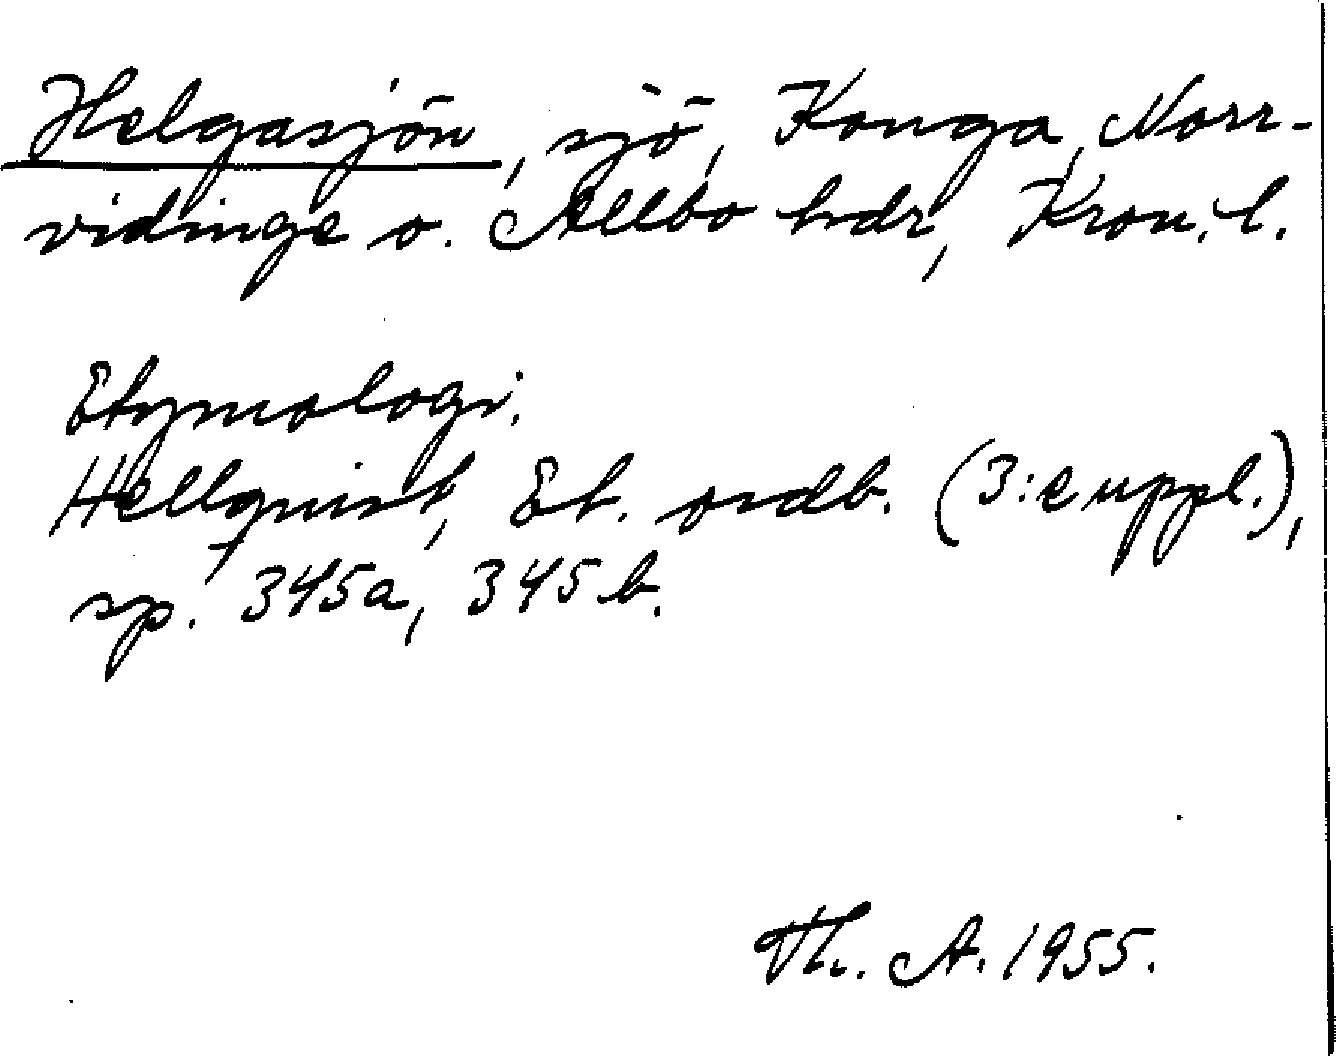 Helgasjön, sjö, Konga, Norr-
vidinge o. Allbo hdr, Kron. l.
Etymologi.
Hellquist, Et. ordb. (3:e uppl.),
sp. 345a, 345 b.
Th. A. 1955.